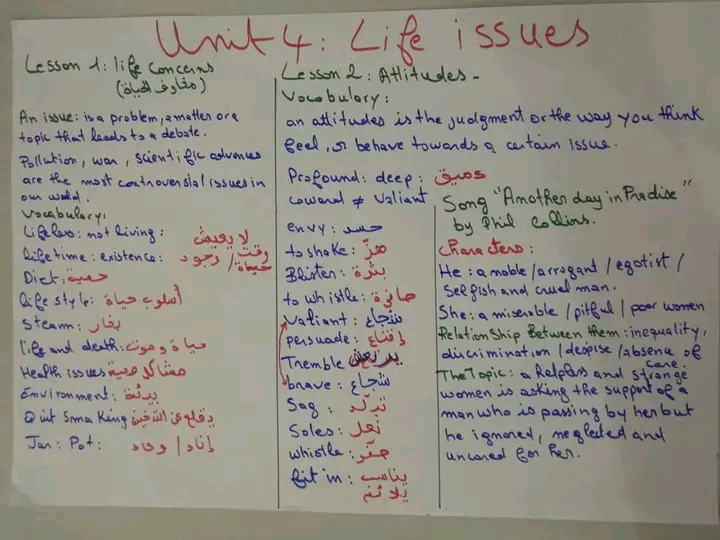 Unit 4: Life issues
Lesson 1: life concerns
(مخاوف الحياة)
An issue: is a problem, a matter or a
topic that leads to a debate.
Pollution, war, scientific advances
are the most controversial issues in
our world.
Vocabulary:
Lifeless: not living: لا يعيش
life time: existence: وقت / وجود
حياة
Diet: حمية
life style: أسلوب حياة
Steam: بخار
life and death: حياة وموت
Health issues مشاكل صحية
Environment: بيئة
Quit Smoking يقلع عن التدخين
Jar: Pot: إناء / وعاء
Lesson 2: Attitudes-
Vocabulary:
an attitudes is the judgment or the way you think
feel, or behave towards a certain issue.
Profound: deep: عميق
coward ≠ Valiant
envy: حسد
to shake: هزّ
Blister: بثرة
to whistle: صافرة
Valiant: شجاع
persuade: إقناع
Tremble
brave: شجاع
Sag:
Soles: نعل
whistle: صفّر
fit in: يناسب
يلائم
Song "Another day in Pradise"
by Phil Collins.
Characters:
He: a noble / arrogant / egotist /
Selfish and cruel man.
She: a miserable / pitful / poor women
RelationShip Between them: inequality,
discrimination / despise / absence of
care.
The Topic: a helpless and strange
women is asking the support of a
man who is passing by her but
he ignored, neglected and
uncared for her.